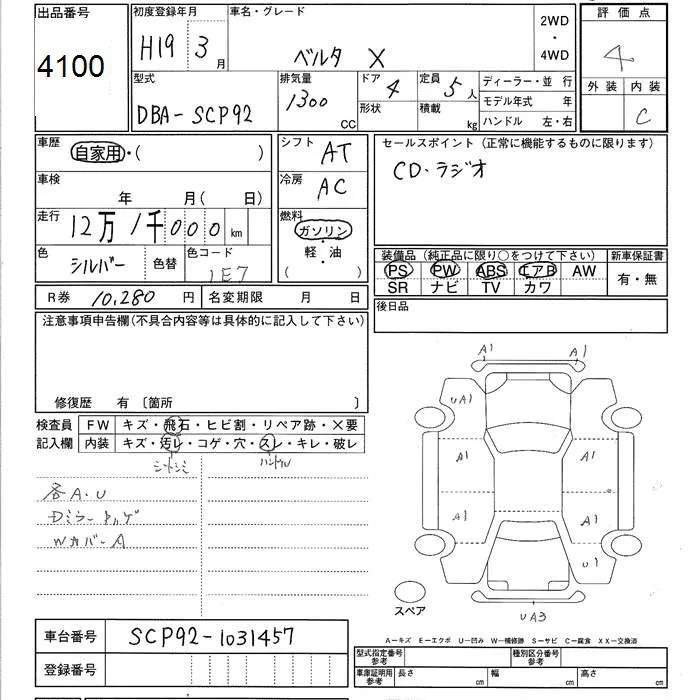 出品番号 初度登録年月 車名・グレード 2WD・4WD 評価点
4100 H19 3月 ベルタ X 4
型式 排気量 ドア 定員 ディーラー・並行 外装 内装
DBA-SCP92 1300CC 4 5人 モデル年式 年 C
形状 積載 kg ハンドル 左・右
車歴 自家用・( ) シフト AT セールスポイント(正常に機能するものに限ります)
車検 年 月( 日) 冷房 AC CD・ラジオ
走行 12万1千000km 燃料 ガソリン・軽油 ( )
色 シルバー 色替 色コード 1E7
装備品(純正品に限り○をつけて下さい) 新車保証書
PS PW ABS エアB AW 有・無
SR ナビ TV カワ
R券 10,280円 名変期限 月 日 後日品
注意事項申告欄(不具合内容等は具体的に記入して下さい)
修復歴 有〔箇所 〕
検査員記入欄 FW キズ・飛石・ヒビ割・リペア跡・×要
内装 キズ・汚レ・コゲ・穴・スレ・キレ・破レ
シートシミ ハンドル
各A.U
Wカバー A
A1 A1
UA1
A1 A1
A1 A1
U1
スペア UA3
A-キズ E-エクボ U-凹み W-補修跡 S-サビ C-腐食 XX-交換済
車台番号 SCP92-1031457
型式指定番号 参考 種別区分番号 参考
登録番号 車庫証明用 参考 長さ cm 幅 cm 高さ cm